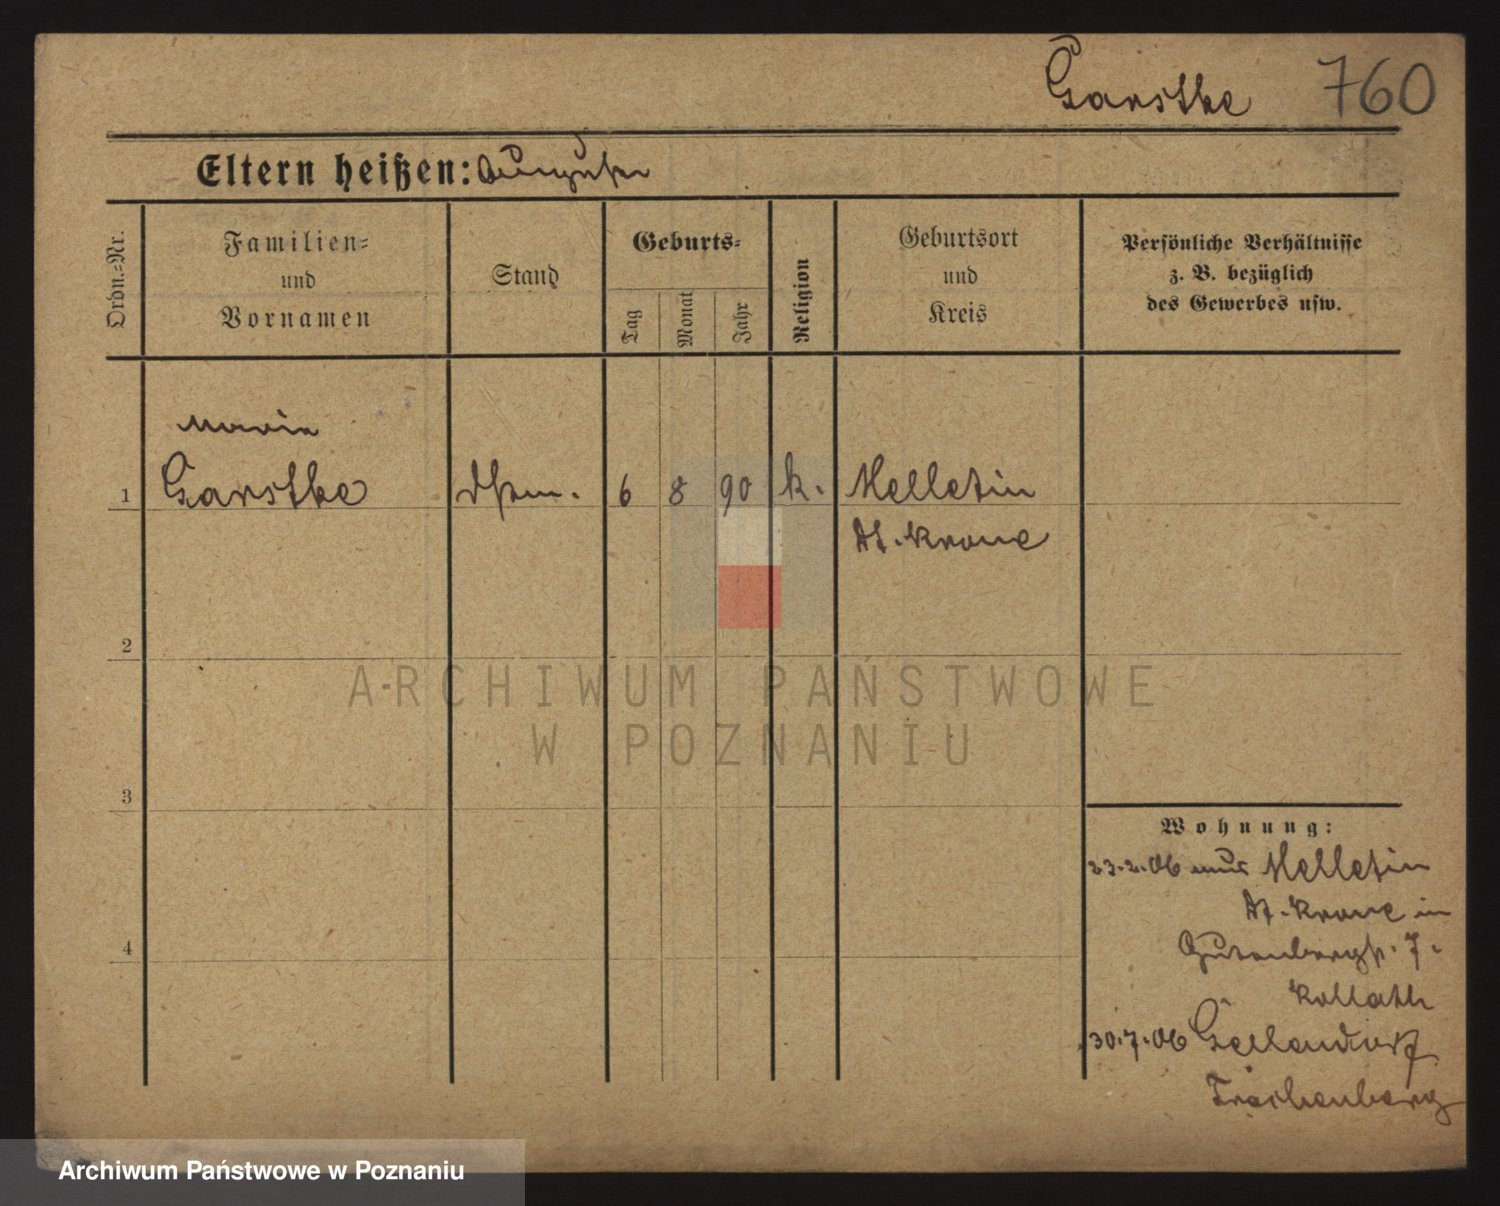 Garstke 760
Eltern heißen: August
Ordn.-Nr.
Familien-
und
Vornamen
Stand
Geburts-
Tag
Monat
Jahr
Religion
Geburtsort
und
Kreis
Persönliche Verhältnisse
z. B. bezüglich
des Gewerbes usw.
Marie
1 Garstke 6 8 90 k. Melletin
Dt. Krone
2
3
4
Wohnung:
23.2.06 aus Melletin
Dt. Krone in
Gutenbergstr. 7.
Kollath
30.7.06 Gellendorf
Trachenberg
ARCHIWUM PAŃSTWOWE
W POZNANIU
Archiwum Państwowe w Poznaniu